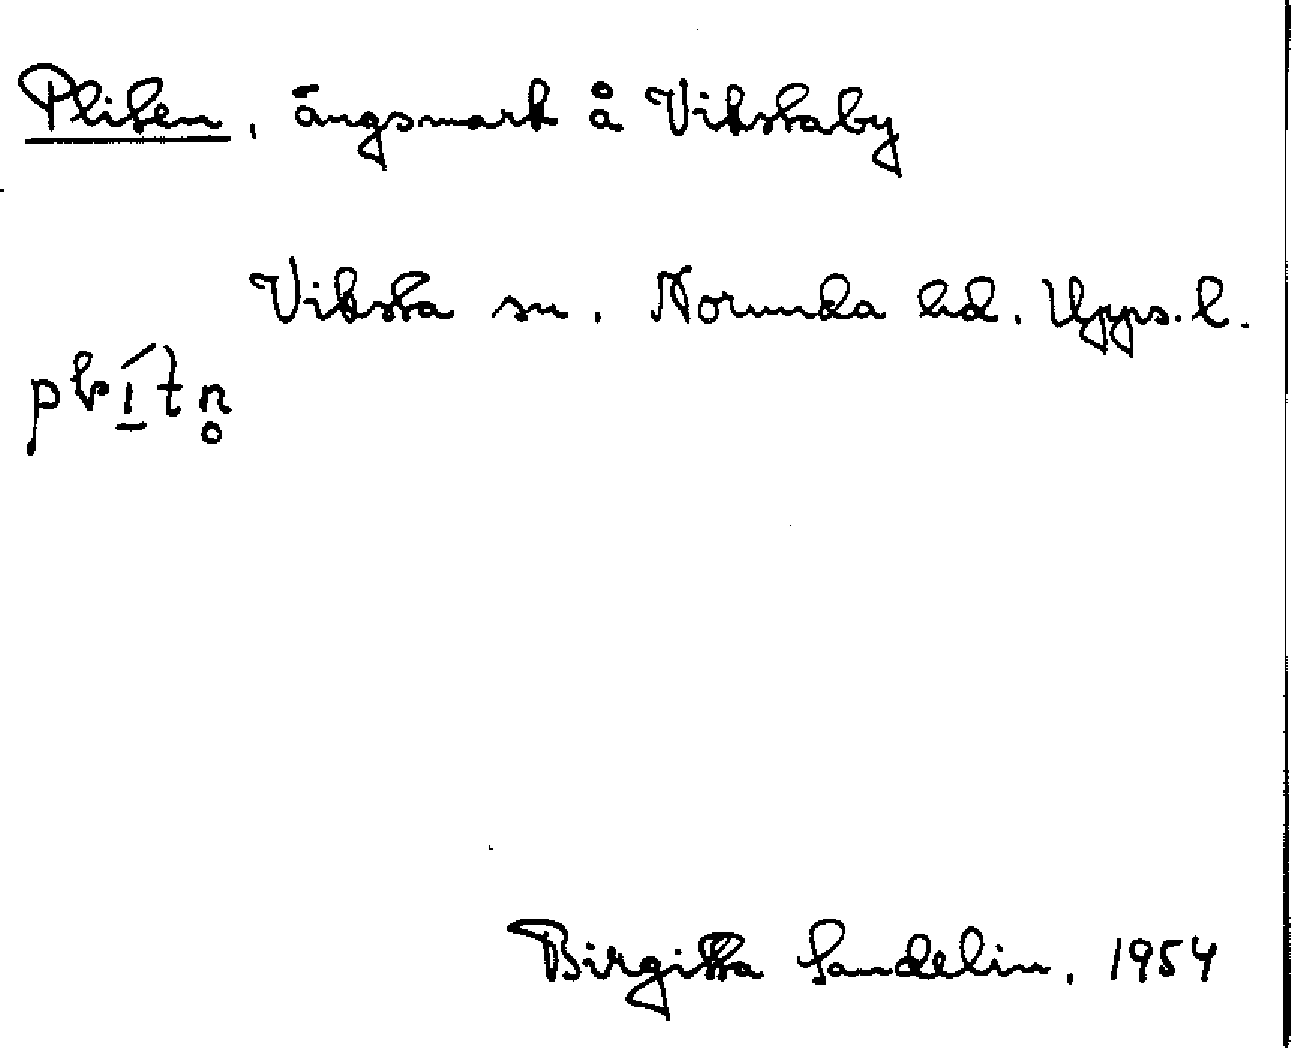 Pliten, ängsmark å Vikstaby
Viksta sn. Norunda hd. Upps. l.
Birgitta Sandelin, 1954